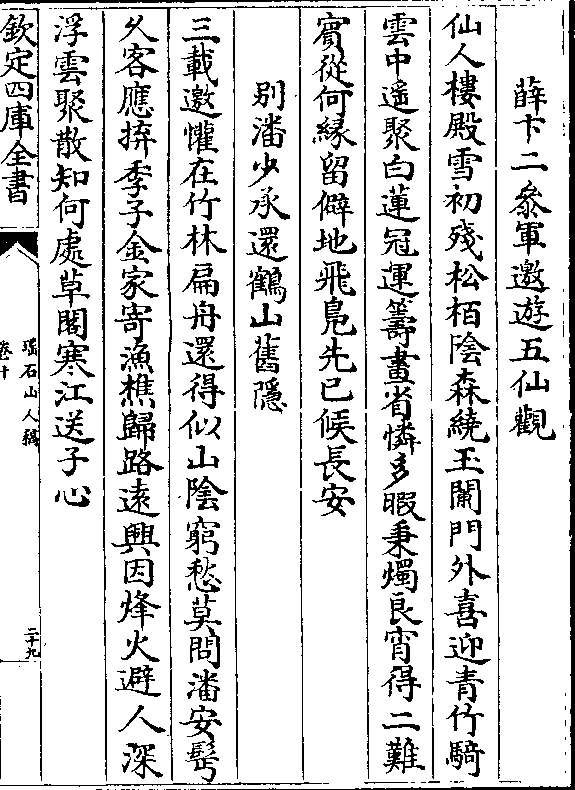 薛卞二參軍邀遊五仙觀
仙人樓殿雪初殘松栢陰森繞玉闌門外喜迎青竹騎
雲中遙聚白蓮冠運籌畫省憐多暇秉燭良宵得二難
賔從何緣留僻地飛鳬先已候長安
別潘少承還鶴山舊隱
三載邀懽在竹林扁舟還得似山陰窮愁莫問潘安髩
久客應拚季子金家寄漁樵歸路遠興因烽火避人深
浮雲聚散知何處草閣寒江送子心
欽定四庫全書
瑶石山人稿
卷十
二十九